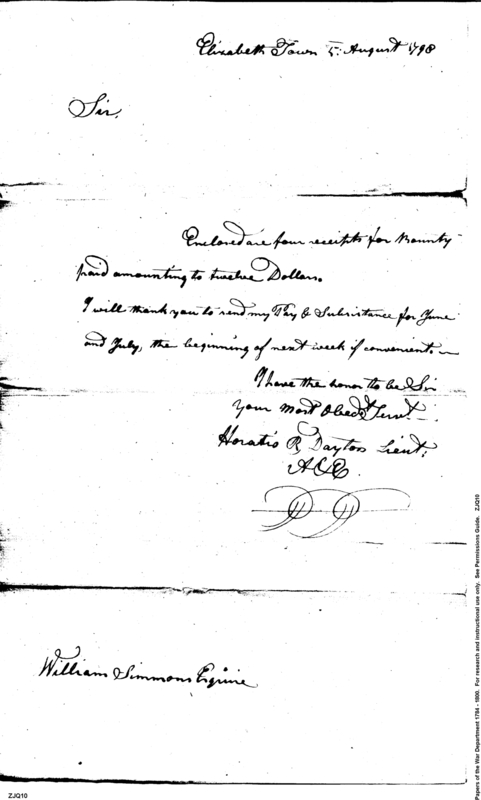 Elizabeth Town 5. August 1798
Sir.
Enclosed are four receipts for Bounty
paid amounting to twelve Dollars.
I will thank you to send my Pay & Subsistance for June
and July, the beginning of next week if convenient.
I have the honor to be Sir
Your Most Obedt. Servt.
Horatio R Dayton Lieut:
William Simmons Esquire
ZJQ10
Papers of the War Department 1784 - 1800. For research and instructional use only. See Permissions Guide. ZJQ10